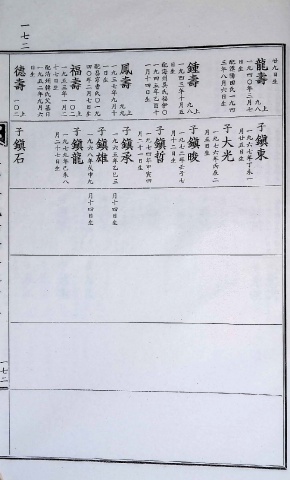 一七二
廿九日生
龍壽 九八上
一九四〇年二月七日生
配淮陽田氏一九四三年八月六日生
鍾壽 九八上
一九四二年十月五日生
月十四日生
鳳壽 九九上
一九三七年九月一日生
四〇年二月七日生
福壽 一〇二上
一九五三年一月二十一日生
德壽 一〇二上
一九五二年九月六日生
子 鎮東
一九六七年丁未一月廿五日生
子 大光
一九七六年丙辰二月五日生
子 鎮晙
一九七二年壬子七月十二日生
子 鎮哲
一九七四年甲寅四月十一日生
子 鎮承
一九六五年乙巳三月十四日生
子 鎮雄
一九六八年戊申九月十四日生
子 鎮龍
一九七九年己未八月十七日生
子 鎮石
一七二